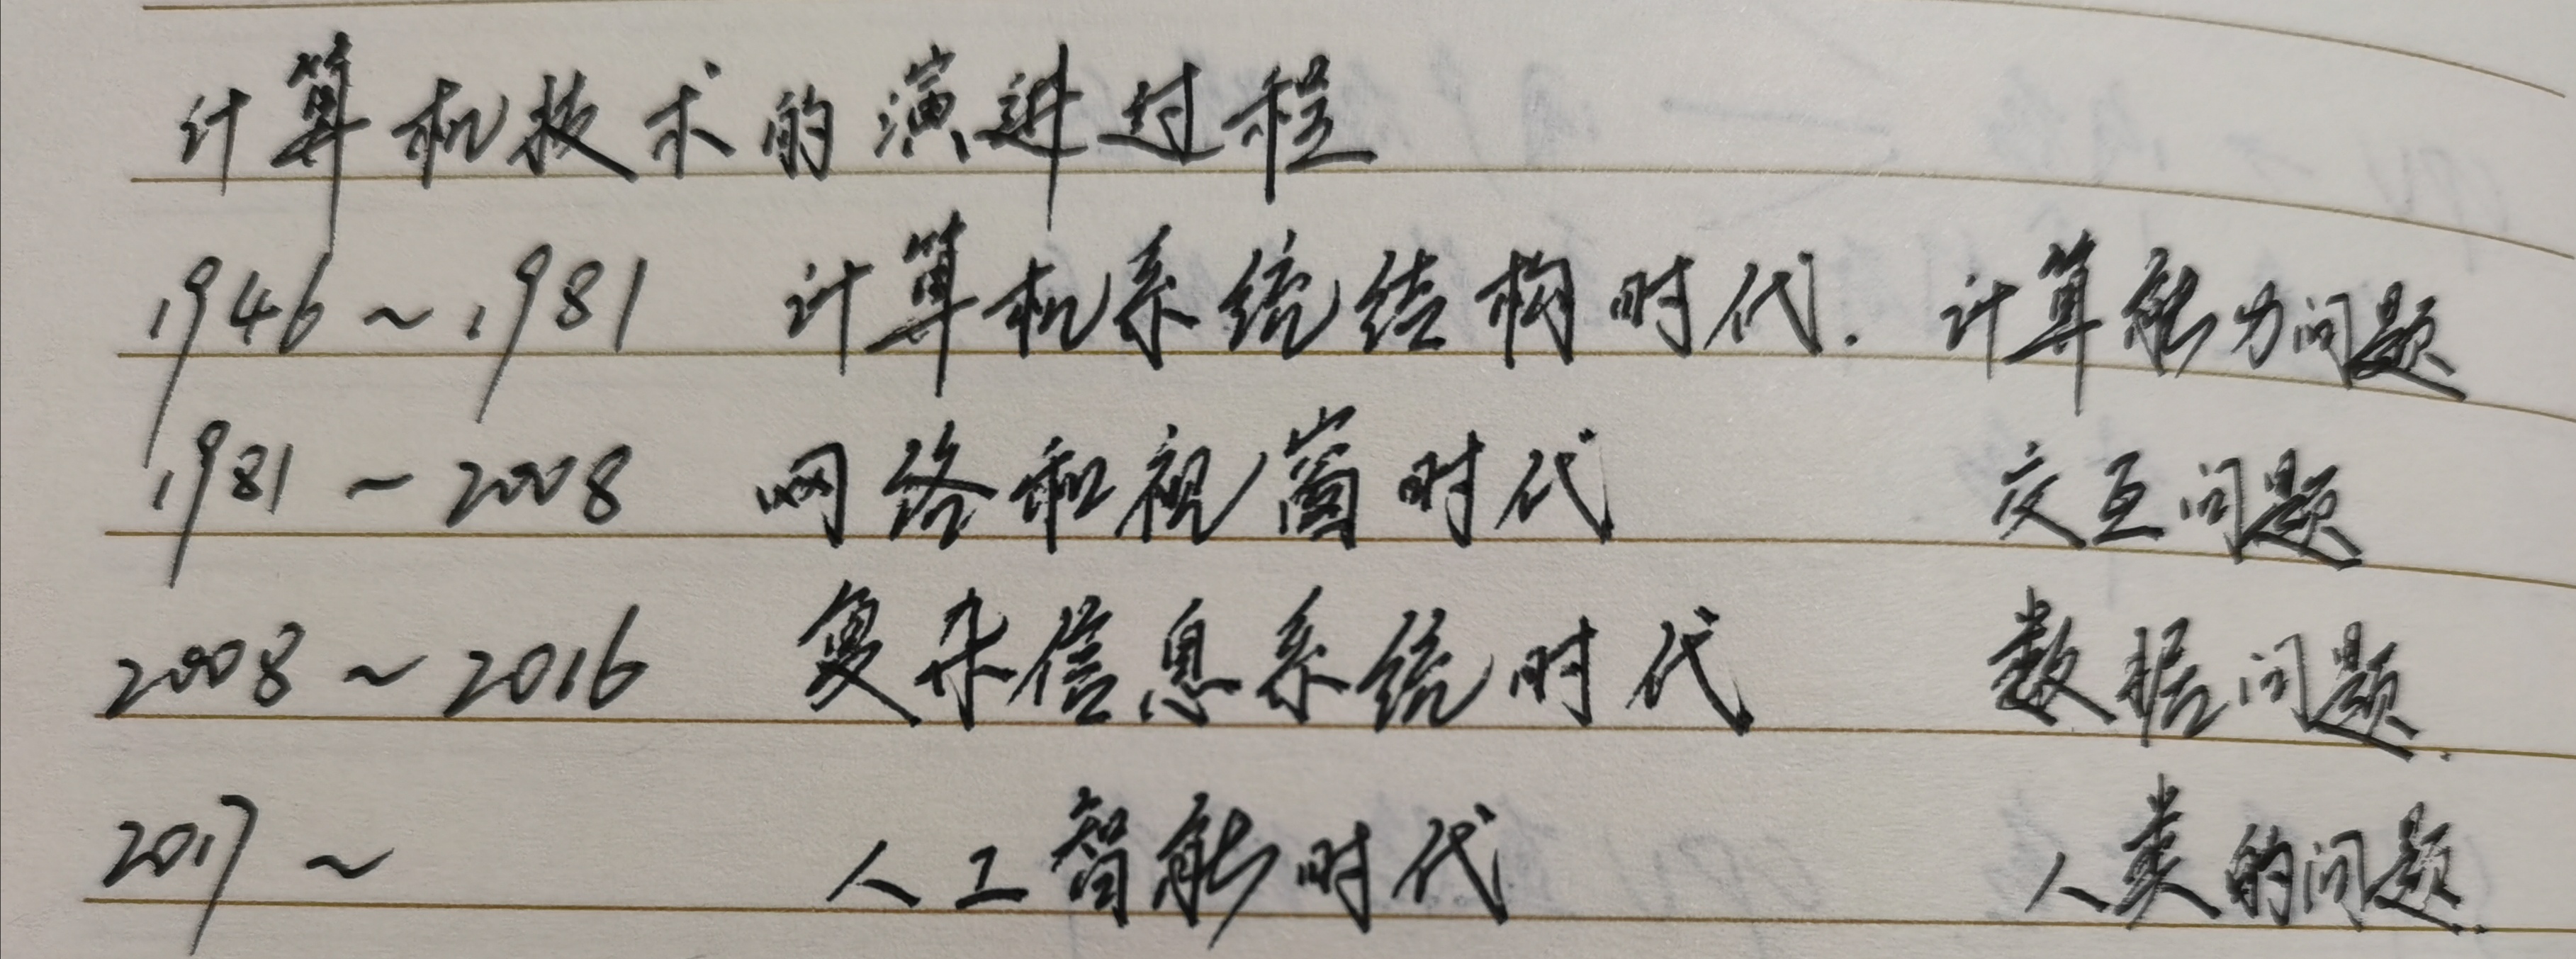 计算机技术的演进过程
1946~1981 计算机系统结构时代. 计算能力问题
1981~2008 网络和视窗时代 交互问题
2008~2016 复杂信息系统时代 数据问题.
2017~ 人工智能时代 人类的问题.